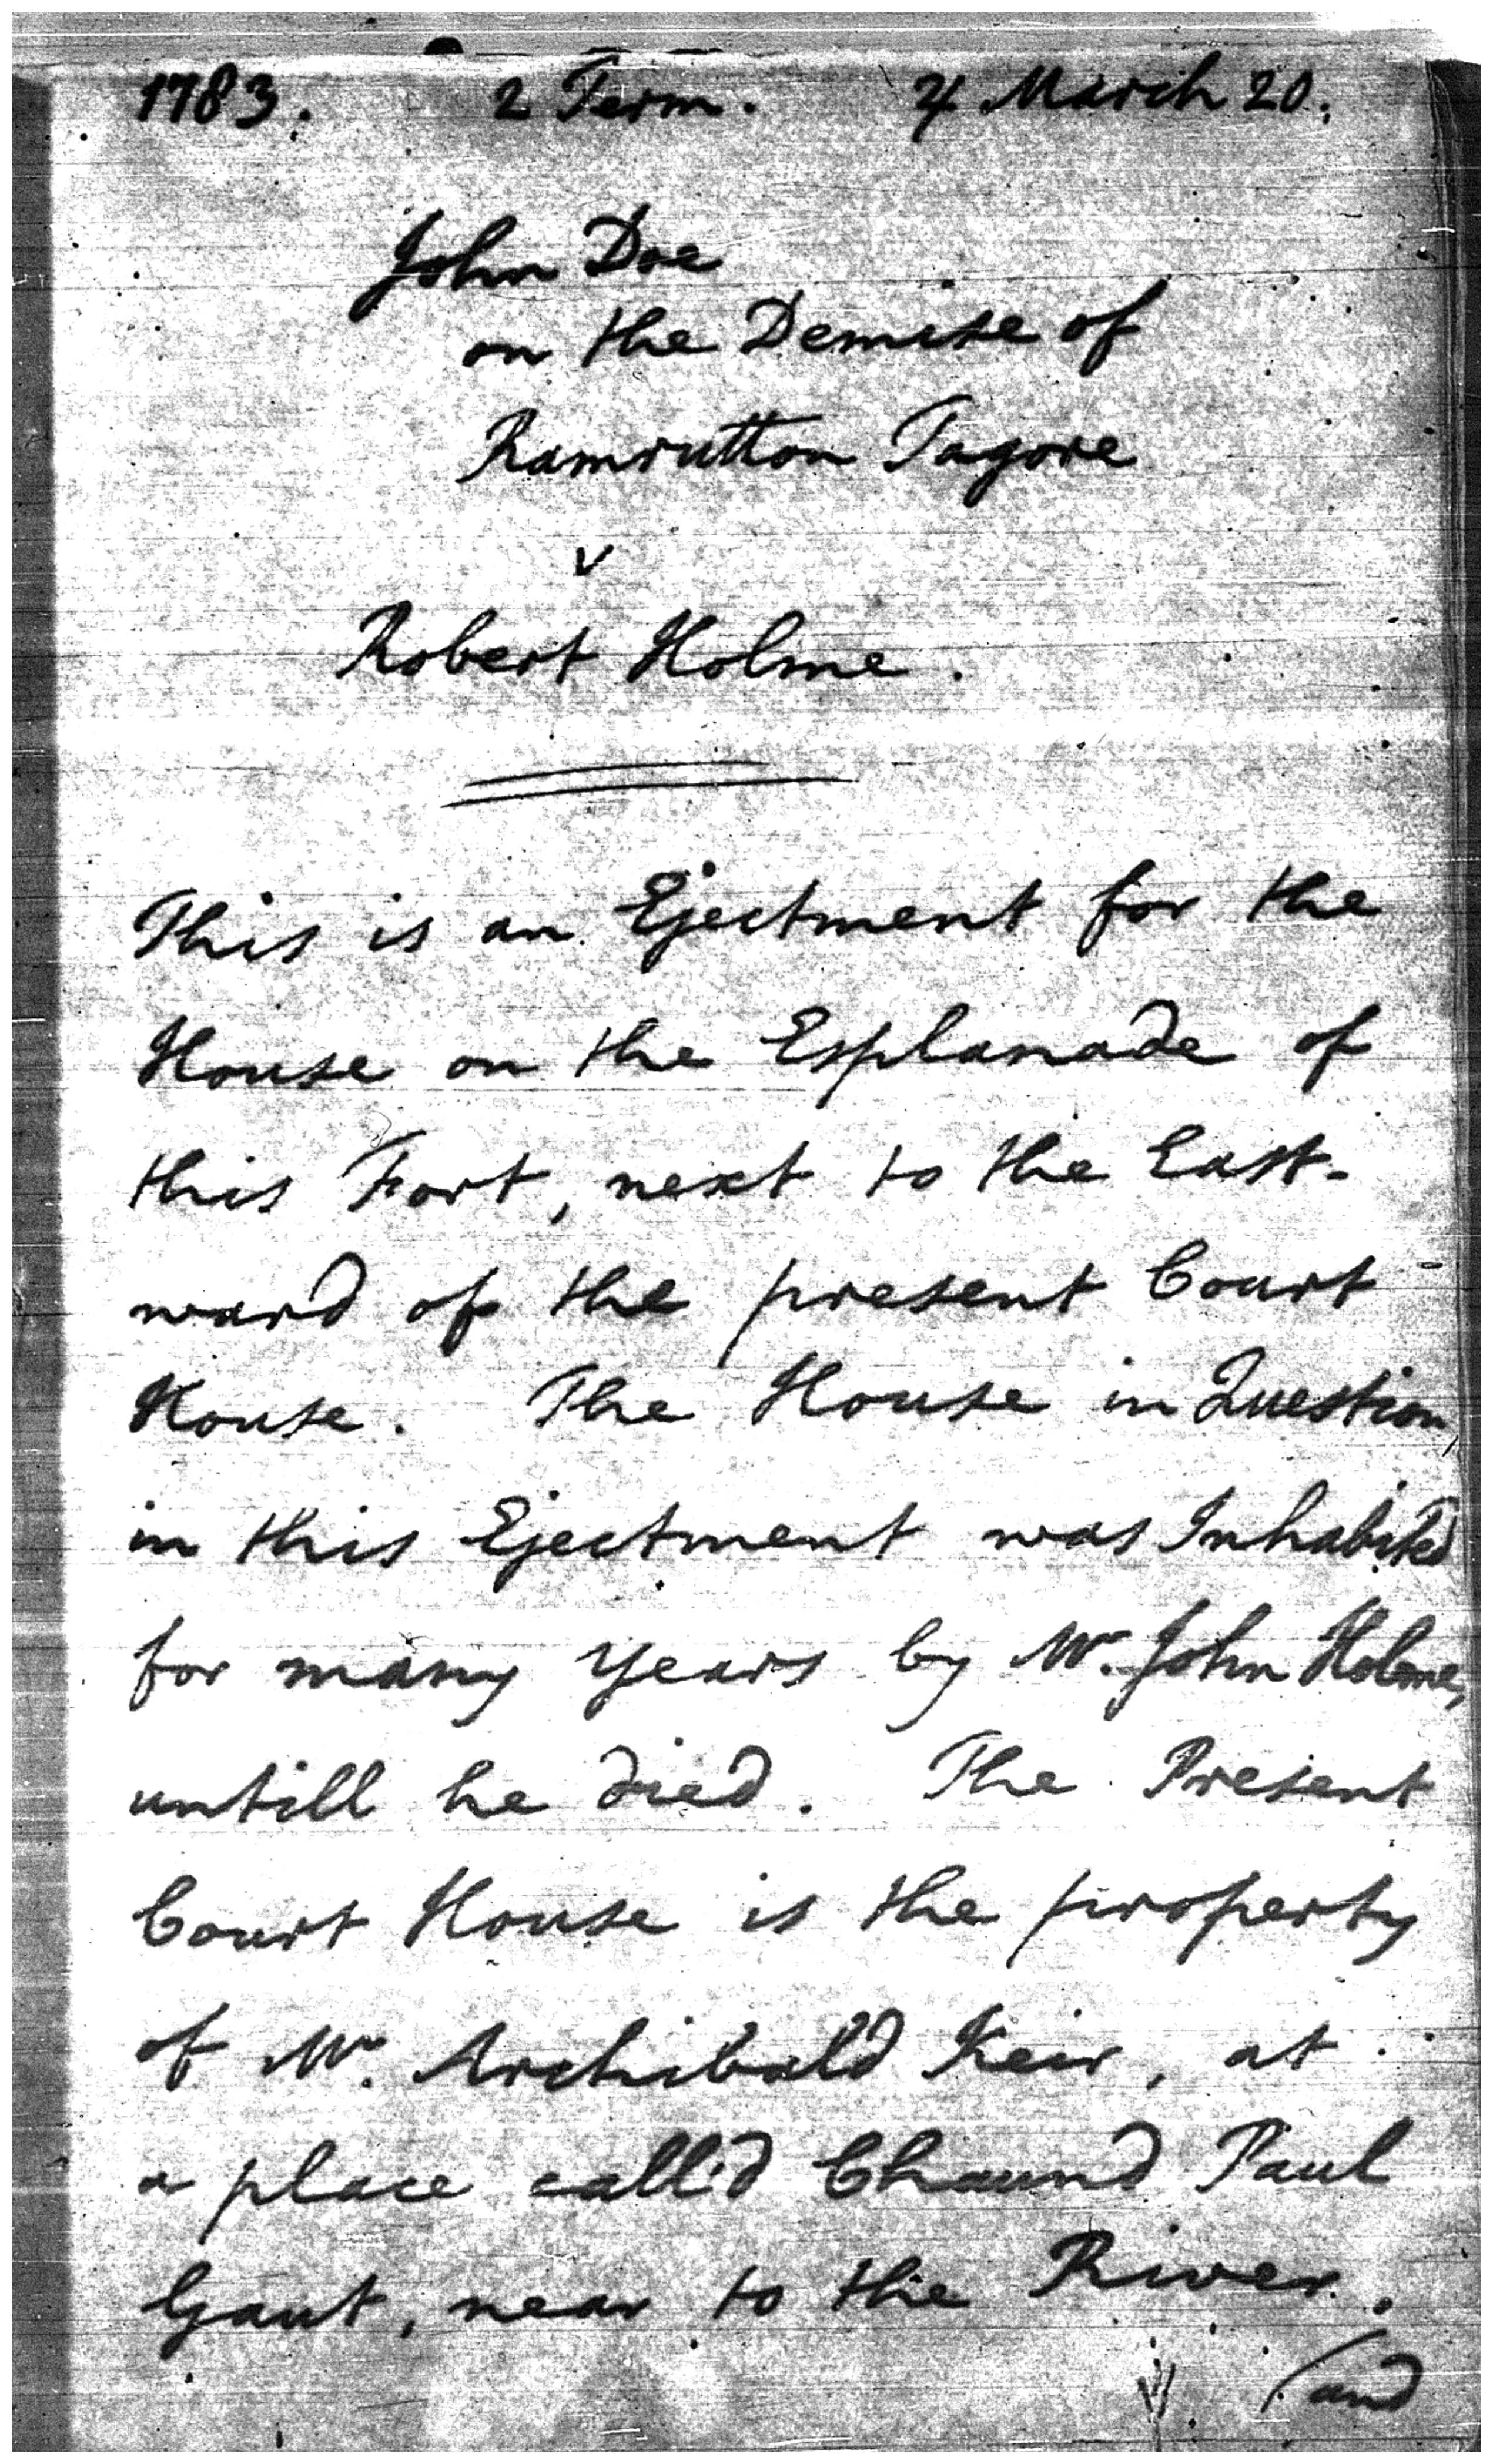 1783. 2 Term. 4 March 20.
John Doe
on the Demise of
Ramrutton Tagore
v
Robert Holme.
This is an Ejectment for the
House on the Esplanade of
this Fort, next to the East-
ward of the present Court-
House. The House in Question,
in this Ejectment was Inhabited
for many years by Mr. John Holme,
untill he died. The Present
Court House is the property
of Mr. Archibald Keir, at
a place call'd Chaund Paul
Gaut, near to the River.
(and